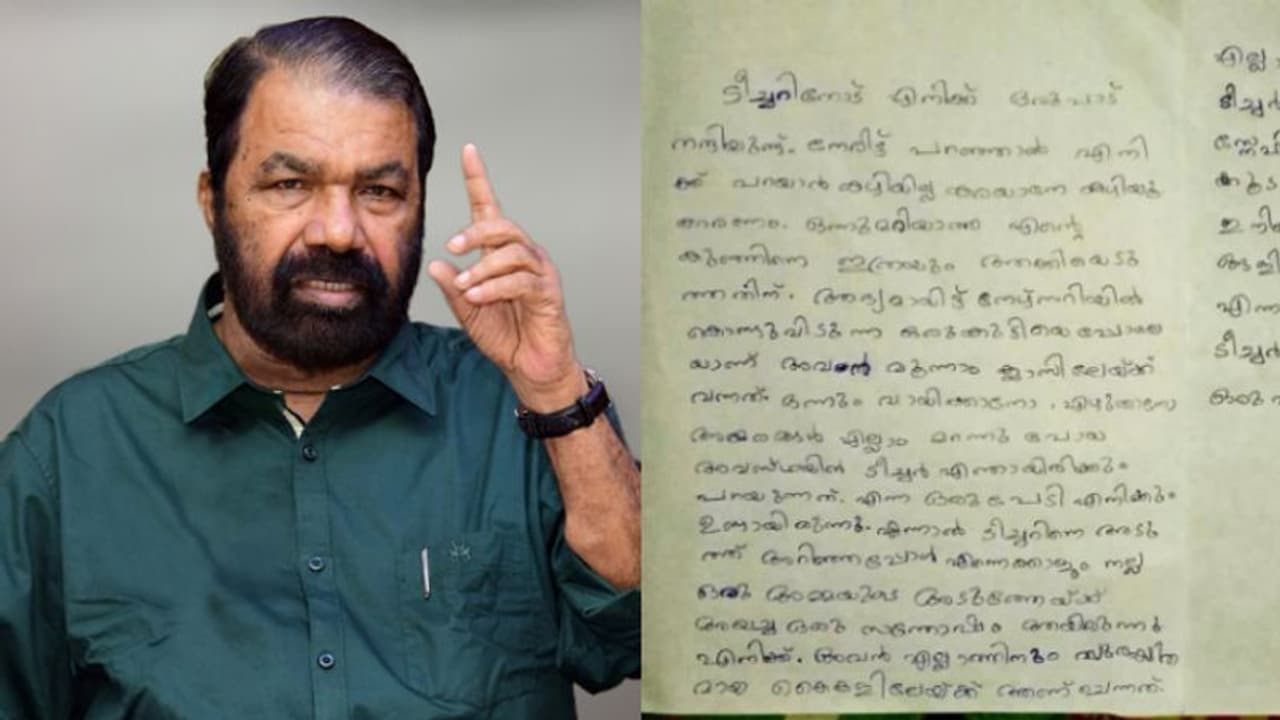 ടീച്ചറിനോട് എനിക്ക് ഒരുപാട്
നന്ദിയുണ്ട്. നേരിട്ട് പറഞ്ഞാൽ എനി
ക്ക് പറയാൻ കഴിയില്ല കരയാനേ കഴിയു
കാരണം. ഒന്നുമറിയാത്ത എന്റെ
കുഞ്ഞിനെ ഇത്രയും ആക്കിയെടു
ത്തതിന്. ആദ്യമായിട്ട് നേഴ്സറിയിൽ
കൊണ്ടുവിടുന്ന ഒരുകുട്ടിയെപോലെ
യാണ് അവൻ മൂന്നാം ക്ലാസിലേയ്ക്ക്
വന്നത്. ഒന്നും വായിക്കാനോ. എഴുതാനോ
അക്ഷരങ്ങൾ എല്ലാം മറന്നു പോയ
അവസ്ഥയിൽ ടീച്ചർ എന്തായിരിക്കും
പറയുന്നത്. എന്ന ഒരു പേടി എനിക്കും
ഉണ്ടായിരുന്നു. എന്നാൽ ടീച്ചറിനെ അടു
ത്ത് അറിഞ്ഞപ്പോൾ എന്നെക്കാളും നല്ല
ഒരു അമ്മയുടെ അടുത്തേയ്ക്ക്
അയച്ച ഒരു സന്തോഷം ആയിരുന്നു
എനിക്ക്. അവൻ എല്ലാത്തിനും സുരക്ഷിത
മായ കൈകളിലേയ്ക്ക് ആണ് ചെന്നത്.
ടീച്ചർ
ടീച്ചർ